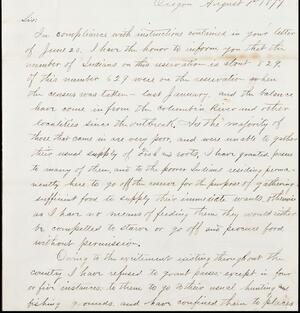 Oregon August 1st 1877
Sir:
In compliance with instructions contained in your letter
of June 20, I have the honor to inform you that the
number of Indians on this reservation is about 1129.
Of this number 629 were on the reservation when
the census was taken last January, and the balance
have come in from the Columbia River and other
localities since the outbreak. As the majority of
those that came in are very poor, and were unable to gather
their usual supply of Fish and roots, I have granted passes
to many of them, and to the poorer Indians residing perma-
nently here to go off the reserve for the purpose of gathering
sufficient food to supply their immediate wants, otherwise
as I have no means of feeding them they would either
be compelled to starve or go off and procure food
without permission.
Owing to the excitement existing throughout the
country I have refused to grant passes except in four
or five instances, to them to go to their usual hunting and
fishing grounds, and have confined them to places